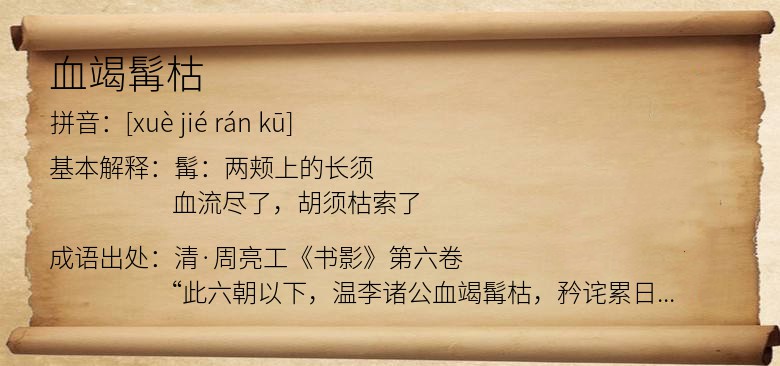 血竭髯枯
拼音：[xuè jié rán kū]
基本解释：髯：两颊上的长须
血流尽了，胡须枯索了
成语出处：清·周亮工《书影》第六卷
“此六朝以下，温李诸公血竭髯枯，矜诧累日...